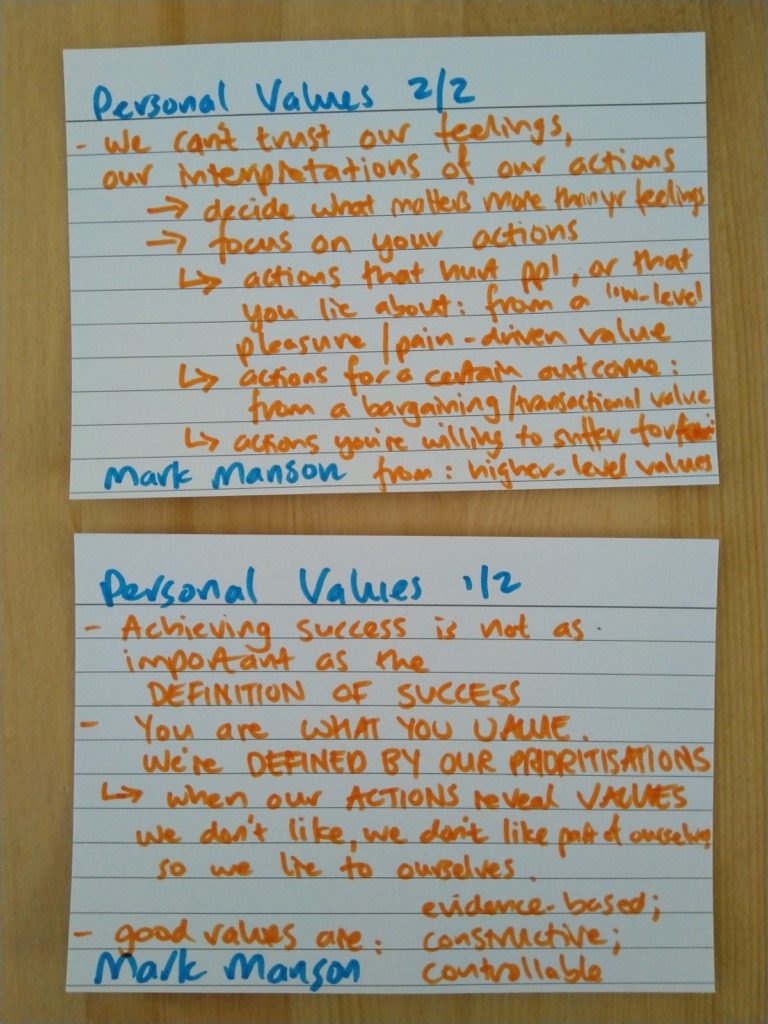 Personal Values 2/2
- We can't trust our feelings,
our interpretations of our actions
→ decide what matters more than yr feelings
→ focus on your actions
↳ actions that hurt ppl, or that
you lie about: from a low-level
pleasure/pain-driven value
↳ actions for a certain outcome:
from a bargaining/transactional value
↳ actions you're willing to suffer for
Mark Manson from: higher-level values
Personal Values 1/2
- Achieving success is not as
important as the
DEFINITION OF SUCCESS
- You are WHAT YOU VALUE.
We're DEFINED BY OUR PRIORITISATIONS
↳ when our ACTIONS reveal VALUES
we don't like, we don't like part of ourselves
so we lie to ourselves.
evidence-based;
- good values are: constructive;
Mark Manson controllable